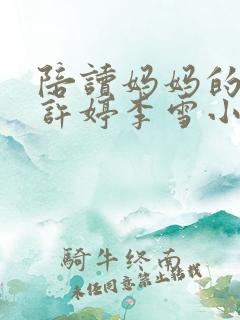 陪讀妈妈的
許婷李雪小
騎牛终南
未经同意禁止转载